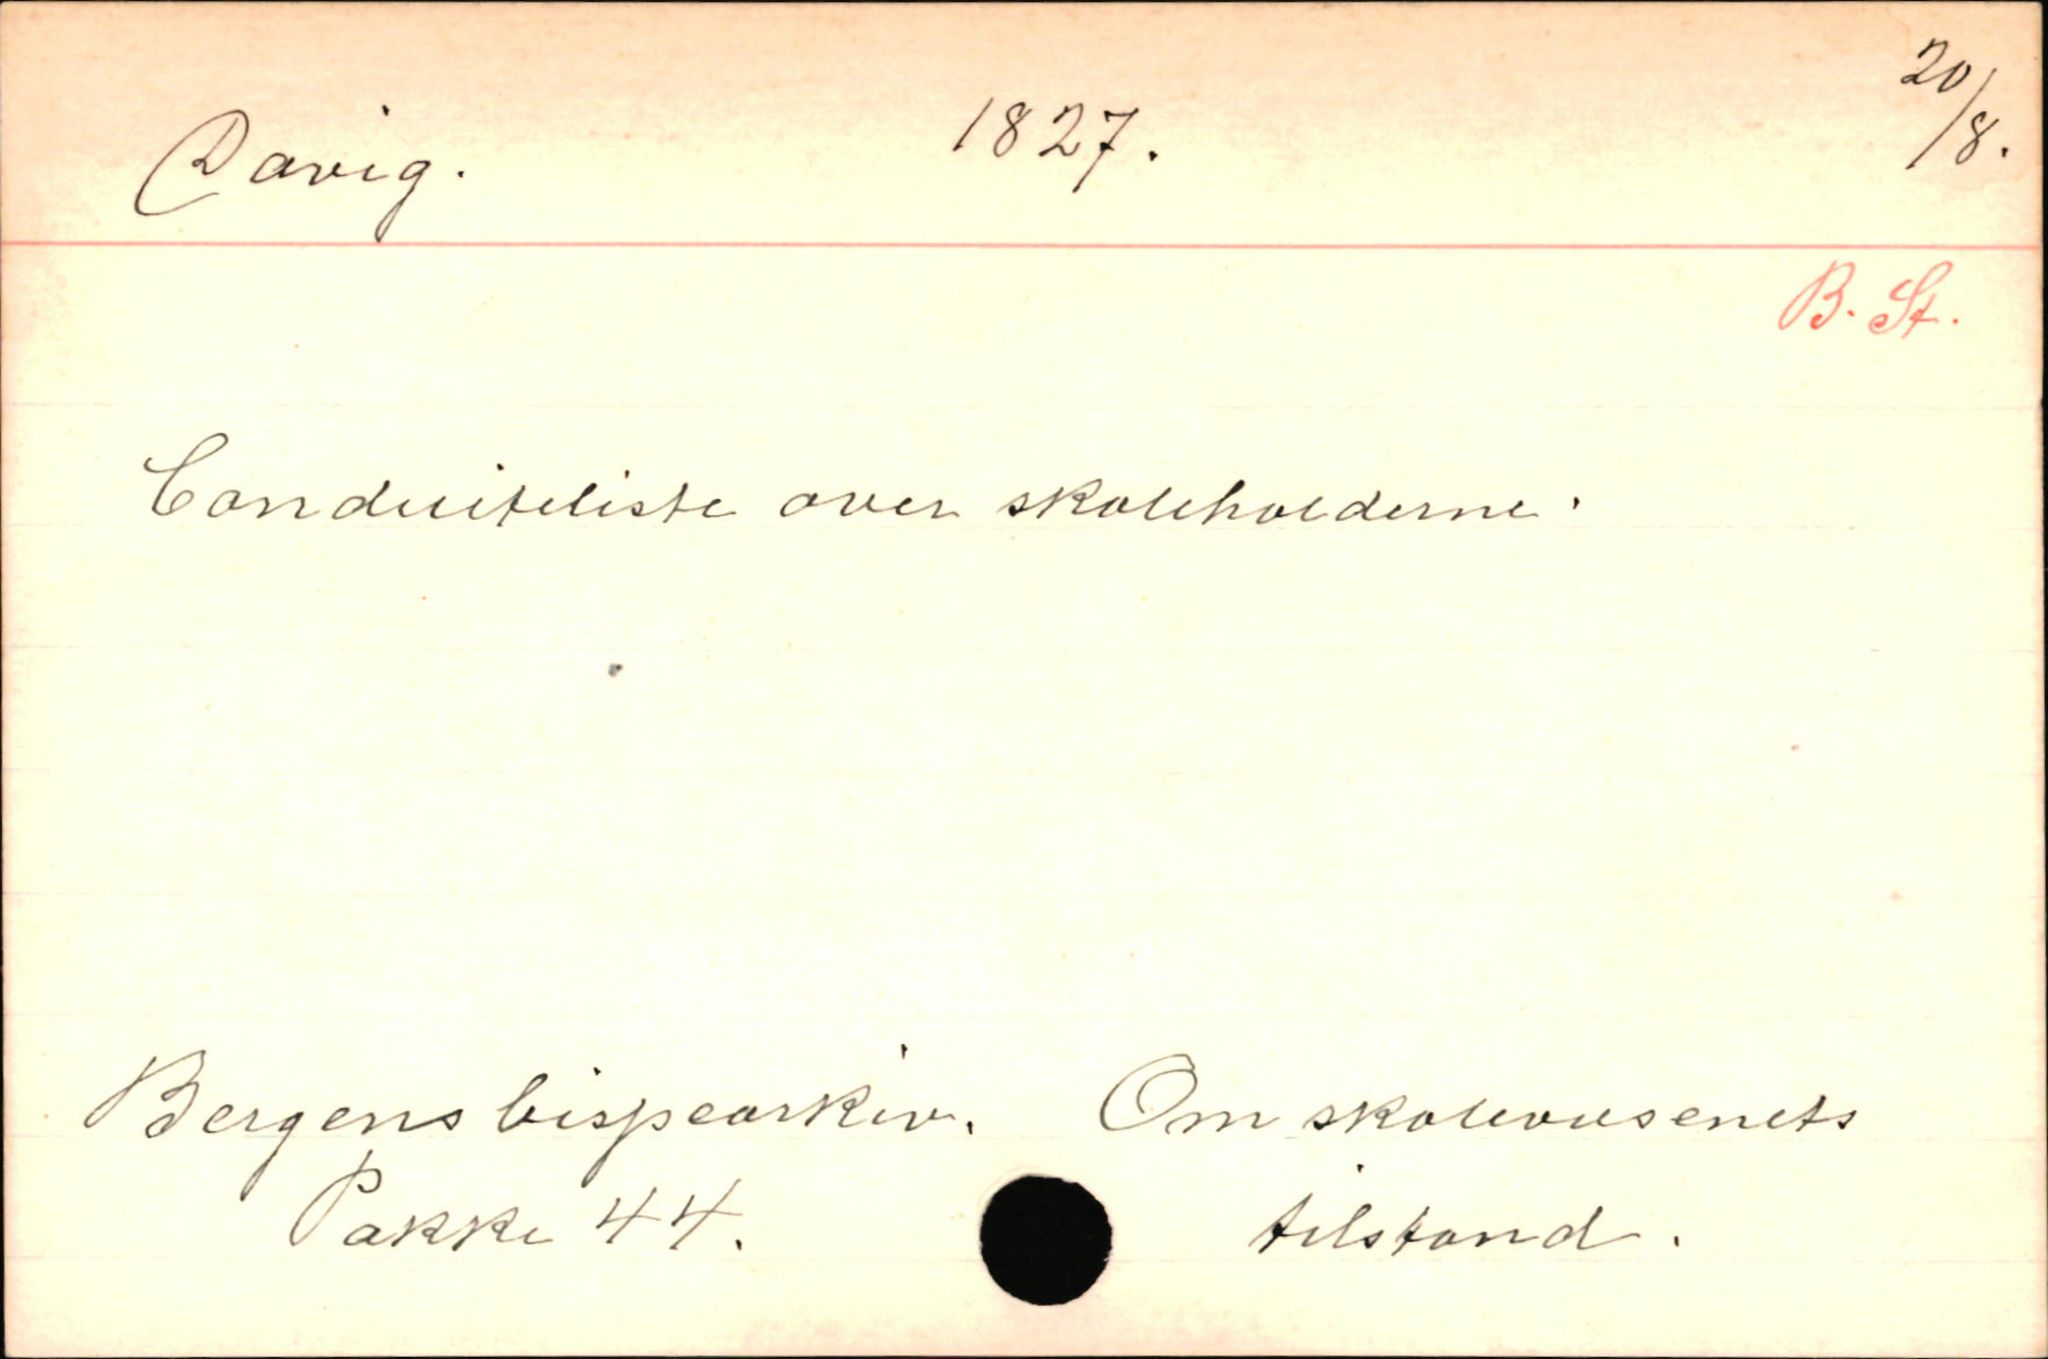 Davig. 1827. 20/8.
B. St.
Conduiteliste over skoleholderne.
Bergens bispearkiv. Om skolevæsenets
Pakke 44. tilstand.